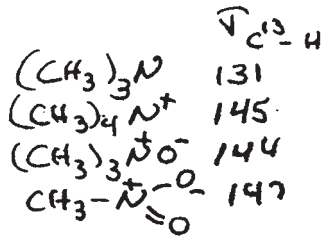 J C¹³-H
(CH₃)₃N 131
(CH₃)₄N⁺ 145
(CH₃)₃N⁺O⁻ 144
CH₃-N⁺-O⁻ 147
=O